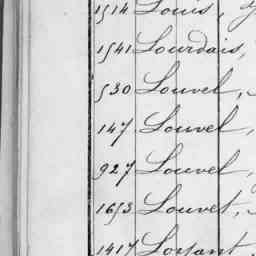 1514 Louis,
1541 Lourdais,
530 Louvel,
147 Louvel,
927 Louvel,
1653 Louvet,
1417 Loysant